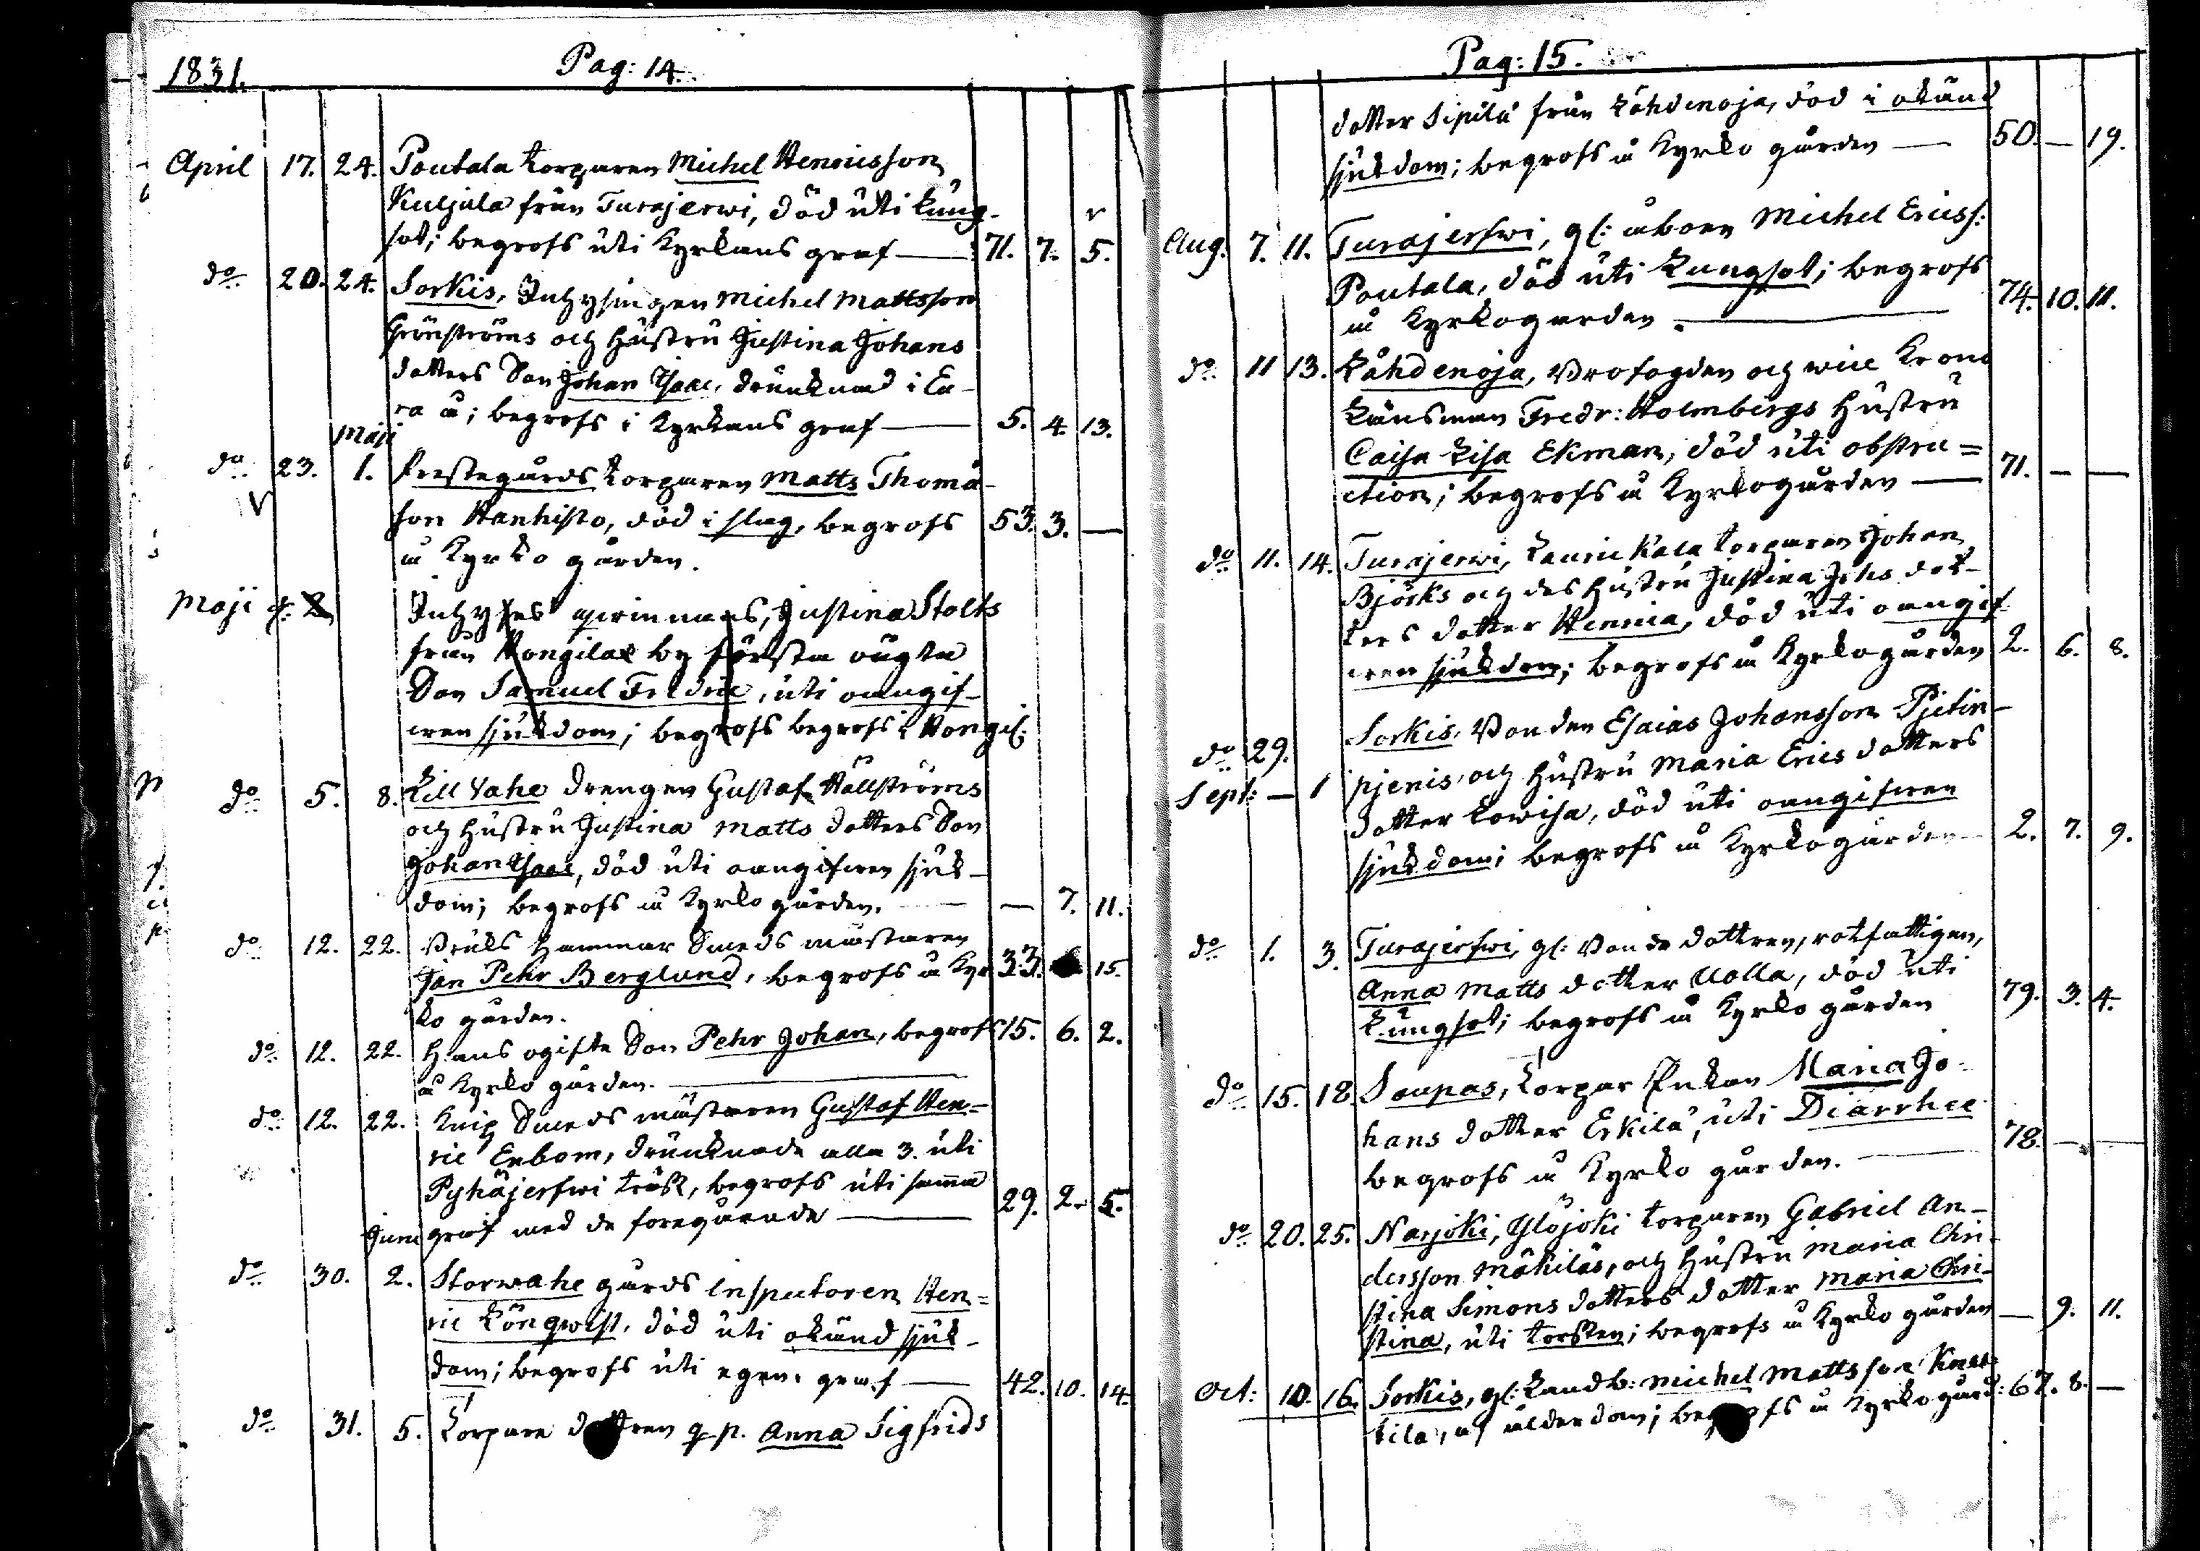 1831.
Pag: 14.
April 17. 24. Poutala torparen Michel Henricsson
Kuljula från Turajerwi, död uti lung-
sot; begrofs uti Kyrkans graf — 71. 7. 5.
do 20. 24. Sorkis, Inhysingen Michel Mattsson
Grönströms och Hustru Justina Johans
dotters Son Johan Isaac, drunknad i Eu-
ra å; begrofs i Kyrkans graf — 5. 4. 13.
Maji
do 23. 1. Prestegårds torparen Matts Thomas-
son Hanhisto, död i slag, begrofs 53. 3. —
å Kyrko gården.
Maji
Inhyses qwinnans, Justina Stolts
från Hongilax by första oägta
Son Samuel Fredric, uti oangif-
wen sjukdom; begrofs begrofs i Hongil:
do 5. 8. Lill Vahe drengen Gustaf Hällströms
och Hustru Justina Matts dotters Son
Johan Isaac, död uti oangifwen sjuk-
dom; begrofs å Kyrko gården. — 7. 11.
do 12. 22. Bruks Hammar Smeds mästaren
Jan Pehr Berglund, begrofs å Kyr 33. 15.
ko gården.
do 12. 22. Hans ogifte Son Pehr Johan, begrofs 15. 6. 2.
å Kyrko gården. —
do 12. 22. Knip Smeds mästaren Gustaf Hen-
ric Enbom, drunknade alla 3. uti
Pyhäjerfwi träsk, begrofs uti samma
graf med de foregående — 29. 2. 5.
Juni
do 30. 2. Storwahe gårds Inspectoren Hen-
ric Lönqwist, död uti okänd sjuk-
dom; begrofs uti egen graf — 42. 10. 14.
do 31. 5. Torpare dottren q. p. Anna Sigfrids
Pag: 15.
dotter Sipilä från Lähdenoja, död i okänd
sjukdom; begrofs å Kyrko gården — 50. — 19.
Aug. 7. 11. Turajerfwi, gl: åboen Michel Erics:
Poutala, död uti Lungsot; begrofs
å Kyrkogården. — 74. 10. 11.
do 11 13. Lähdenoja, Brofogden och wice Krono
Länsman Fredr: Holmbergs Hustru
Caisa Lisa Ekman, död uti obstru=
ction; begrofs å Kyrkogården — 71. — —
do 11. 14. Turajerwi, Laurickala torparen Johan
Björks och des Hustru Justina Johs dot-
ters dotter Hennica, död uti oangif
wen sjukdom; begrofs å Kyrkogården 2. 6. 8.
do 29. Sorkis, Bonden Esaias Johansson Pjetin-
Sept: — 1 pjenis, och Hustru Maria Erics dotters
dotter Lowisa, död uti oangifwen
sjukdom; begrofs å Kyrkogården — 2. 7. 9.
do 1. 3. Turajerfwi, gl: Bonde dottren, rotfattigen,
Anna Matts dotter Uolla, död uti
Lungsot; begrofs å Kyrko gården 79. 3. 4.
do 15. 18. Soupas, torpar Enkan Maria Jo-
hans dotter Erkilä, uti Diarrhee
begrofs å Kyrko gården. — 78. — —
do 20. 25. Narjoki, Ylöjoki torparen Gabriel An-
dersson Mäkiläs, och Hustru Maria Chri-
stina Simons dotters dotter Maria Chri-
stina, uti torsken; begrofs å Kyrko gården — 9. 11.
Oct: 10. 16. Sorkis, gl: Landb: Michel Mattsson Knut-
tila, af ålderdom; begrofs å Kyrkogård: 67. 8. —